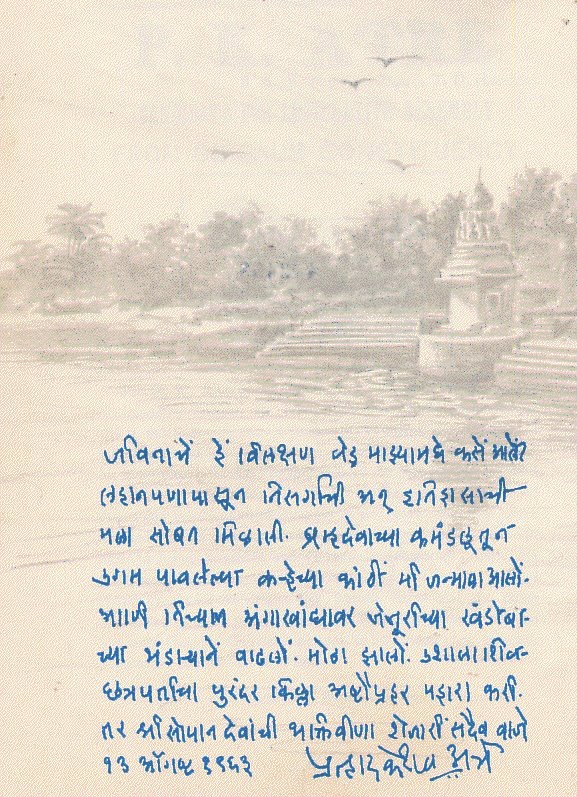 जीवितांचें हें विलक्षण वेड माझ्यामध्ये कसें आलें?
लहानपणापासून निसर्गाची अन् इतिहासाची
मला सोबत मिळाली. ब्रह्मदेवाच्या कमंडलूतून
उगम पावलेल्या कऱ्हेच्या कांठीं मी जन्माला आलों.
आणि तिच्याच अंगाखांद्यावर जेजूरीच्या खंडोबा-
च्या भंडाऱ्यानें वाढलों. मोठा झालों. उशाला शिव-
छत्रपतींचा पुरंदर किल्ला अष्टौप्रहर पहारा करी.
तर श्रीसोपानदेवांची भक्तिवीणा शेजारीं सदैव वाजे
१३ ऑगस्ट १९६३ प्रल्हाद केशव अत्रे